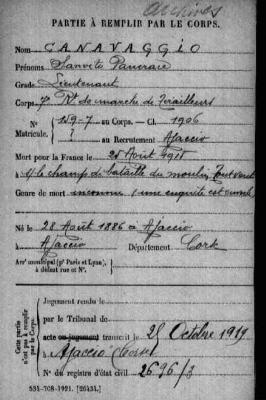 Archives
PARTIE À REMPLIR PAR LE CORPS.
Nom CANAVAGGIO
Prénoms Sanvito Pancrace
Grade Lieutenant
Corps 7e Rt de marche de Tirailleurs
N° 159-7 au Corps. — Cl. 1906
Matricule. ? au Recrutement Ajaccio
Mort pour la France le 25 Août 1918
s/ le champ de bataille du moulin Toutvent
Genre de mort inconnu (une enquête est ouverte
Né le 28 Août 1886 à Ajaccio
à Ajaccio Département Corse
Arrt municipal (pr Paris et Lyon),
à défaut rue et N°.
Cette partie
n'est pas à remplir
par le Corps.
Jugement rendu le
par le Tribunal de
acte ou jugement transcrit le 25 Octobre 1919
à Ajaccio Corse
N° du registre d'état civil 2696/3
534-708-1921. [26434.]